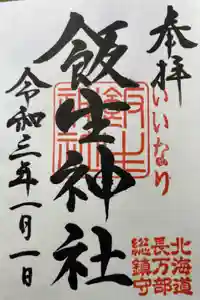 奉拝
いいなり
北海道
長万部
総鎮守
飯生神社
令和三年一月一日